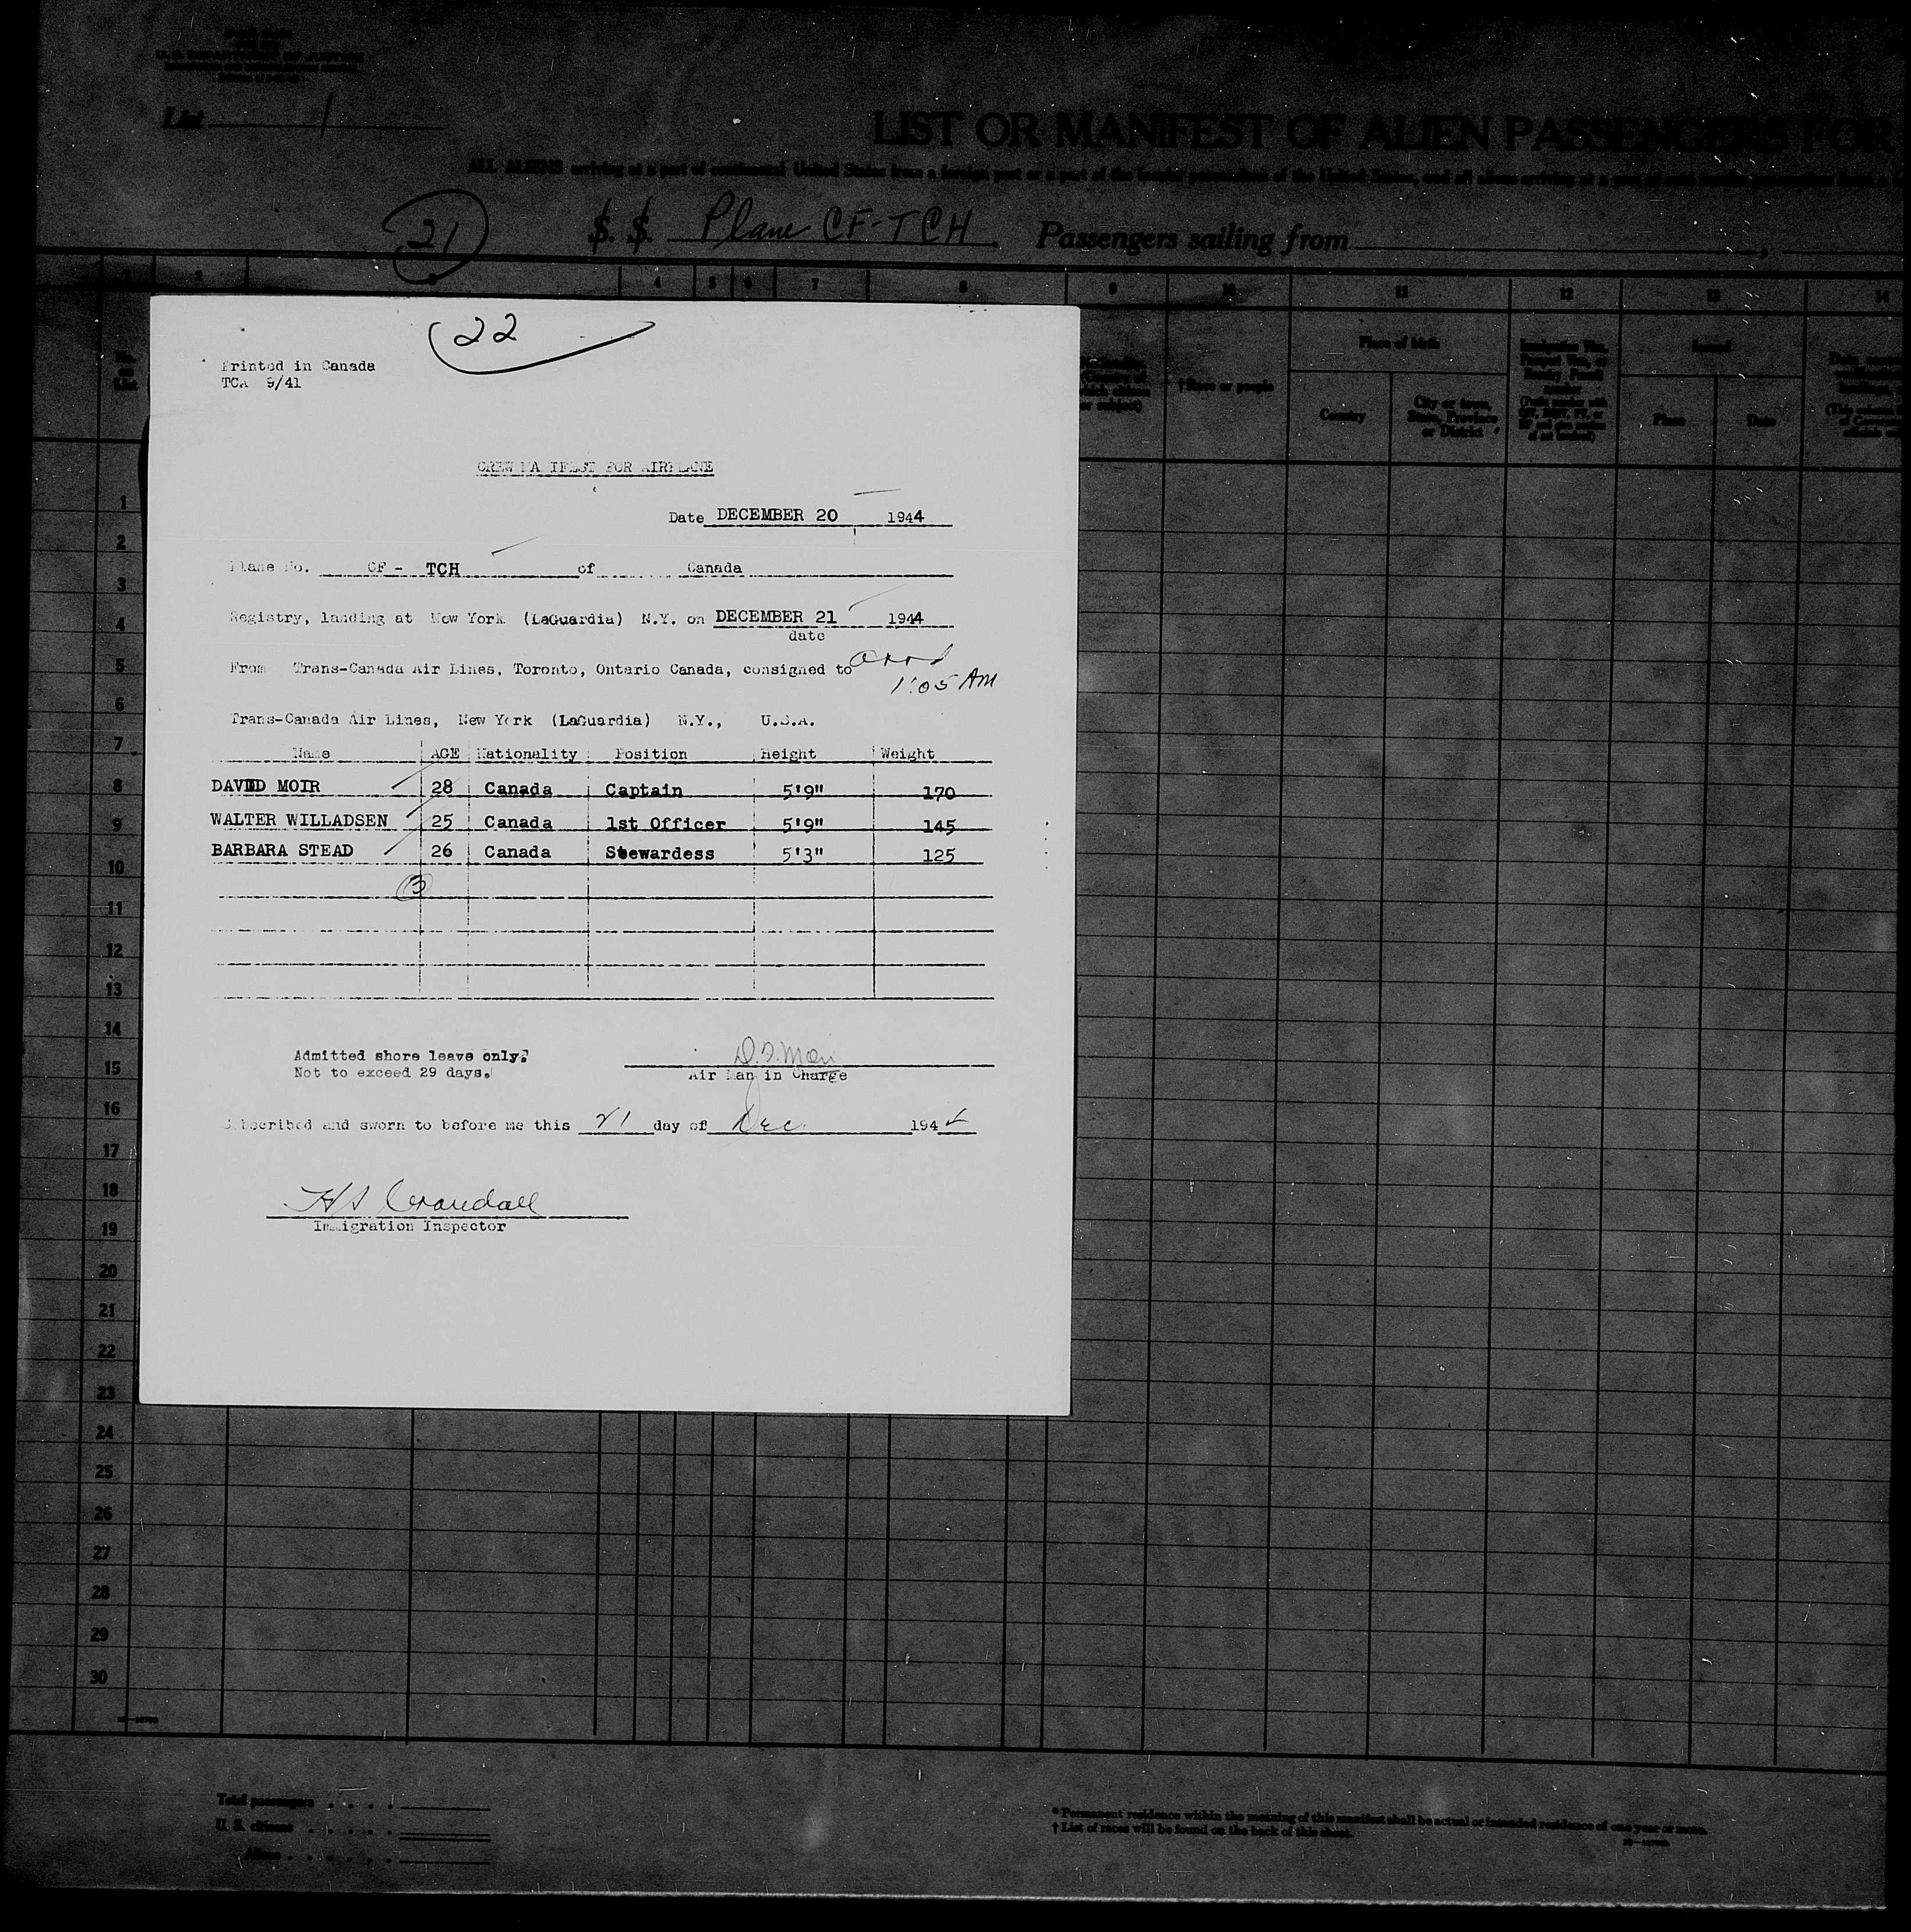 U. S. DEPARTMENT OF JUSTICE
List 1
LIST OR MANIFEST OF ALIEN PASSENGERS FOR
ALL ALIENS arriving at a port of continental United States from a foreign port or a port of the insular possessions of the United States, and all aliens arriving at a port of said insular possessions from a
21 S. S. Plane CF-TCH. Passengers sailing from
1 2 4 5 6 7 8 9 10 11 12 13 14
No. on List
Place of birth
Issued
†Race or people
Country
City or town, State, Province or District
Place
Date
22
Printed in Canada
TCA 9/41
CREW MANIFEST FOR AIRPLANE
Date DECEMBER 20 1944
Plane No. CF - TCH of Canada
Registry, landing at New York (LaGuardia) N.Y. on DECEMBER 21 1944
date
From Trans-Canada Air Lines, Toronto, Ontario Canada, consigned to
1:05 AM
Trans-Canada Air Lines, New York (LaGuardia) N.Y., U.S.A.
Name AGE Nationality Position Height Weight
DAVID MOIR 28 Canada Captain 5'9" 170
WALTER WILLADSEN 25 Canada 1st Officer 5'9" 145
BARBARA STEAD 26 Canada Stewardess 5'3" 125
3
Admitted shore leave only.
Not to exceed 29 days.
Air Man in Charge
Subscribed and sworn to before me this 21 day of Dec. 1944
H S Crandall
Immigration Inspector
1
2
3
4
5
6
7
8
9
10
11
12
13
14
15
16
17
18
19
20
21
22
23
24
25
26
27
28
29
30
Total passengers . . . .
U. S. citizens . . . . .
Aliens . . . . . .
* Permanent residence within the meaning of this manifest shall be actual or intended residence of one year or more.
† List of races will be found on the back of this sheet.